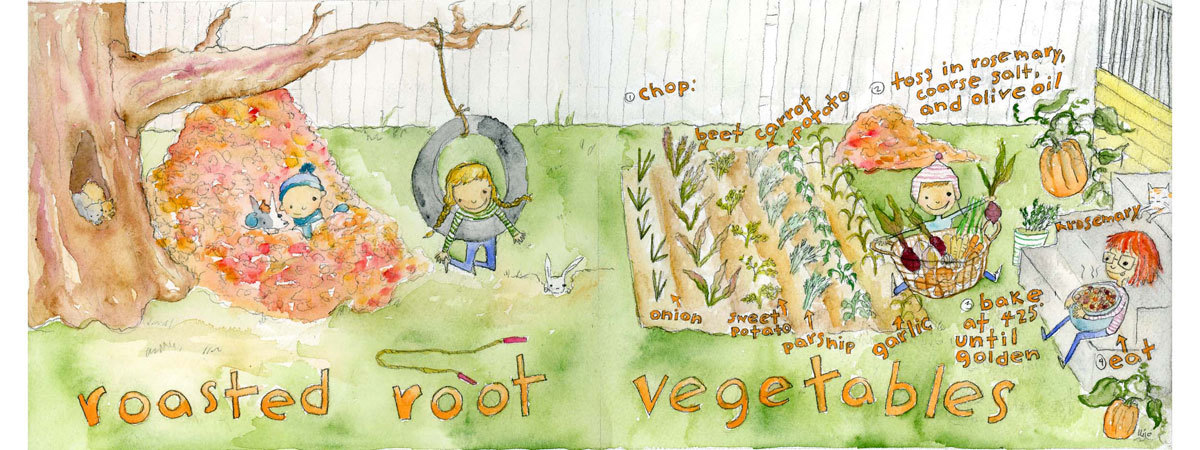 ① chop:
beet
carrot
potato
onion
sweet
potato
parsnip
garlic
② toss in rosemary,
coarse salt,
and olive oil
rosemary
③ bake
at 425°
until
golden
④ eat
roasted root vegetables